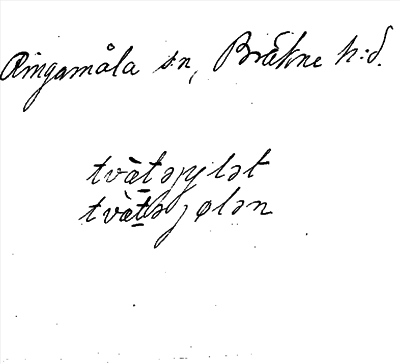 Ringamåla sn, Bräkne h:d.
tvàtəpylət
tvàtəpølən